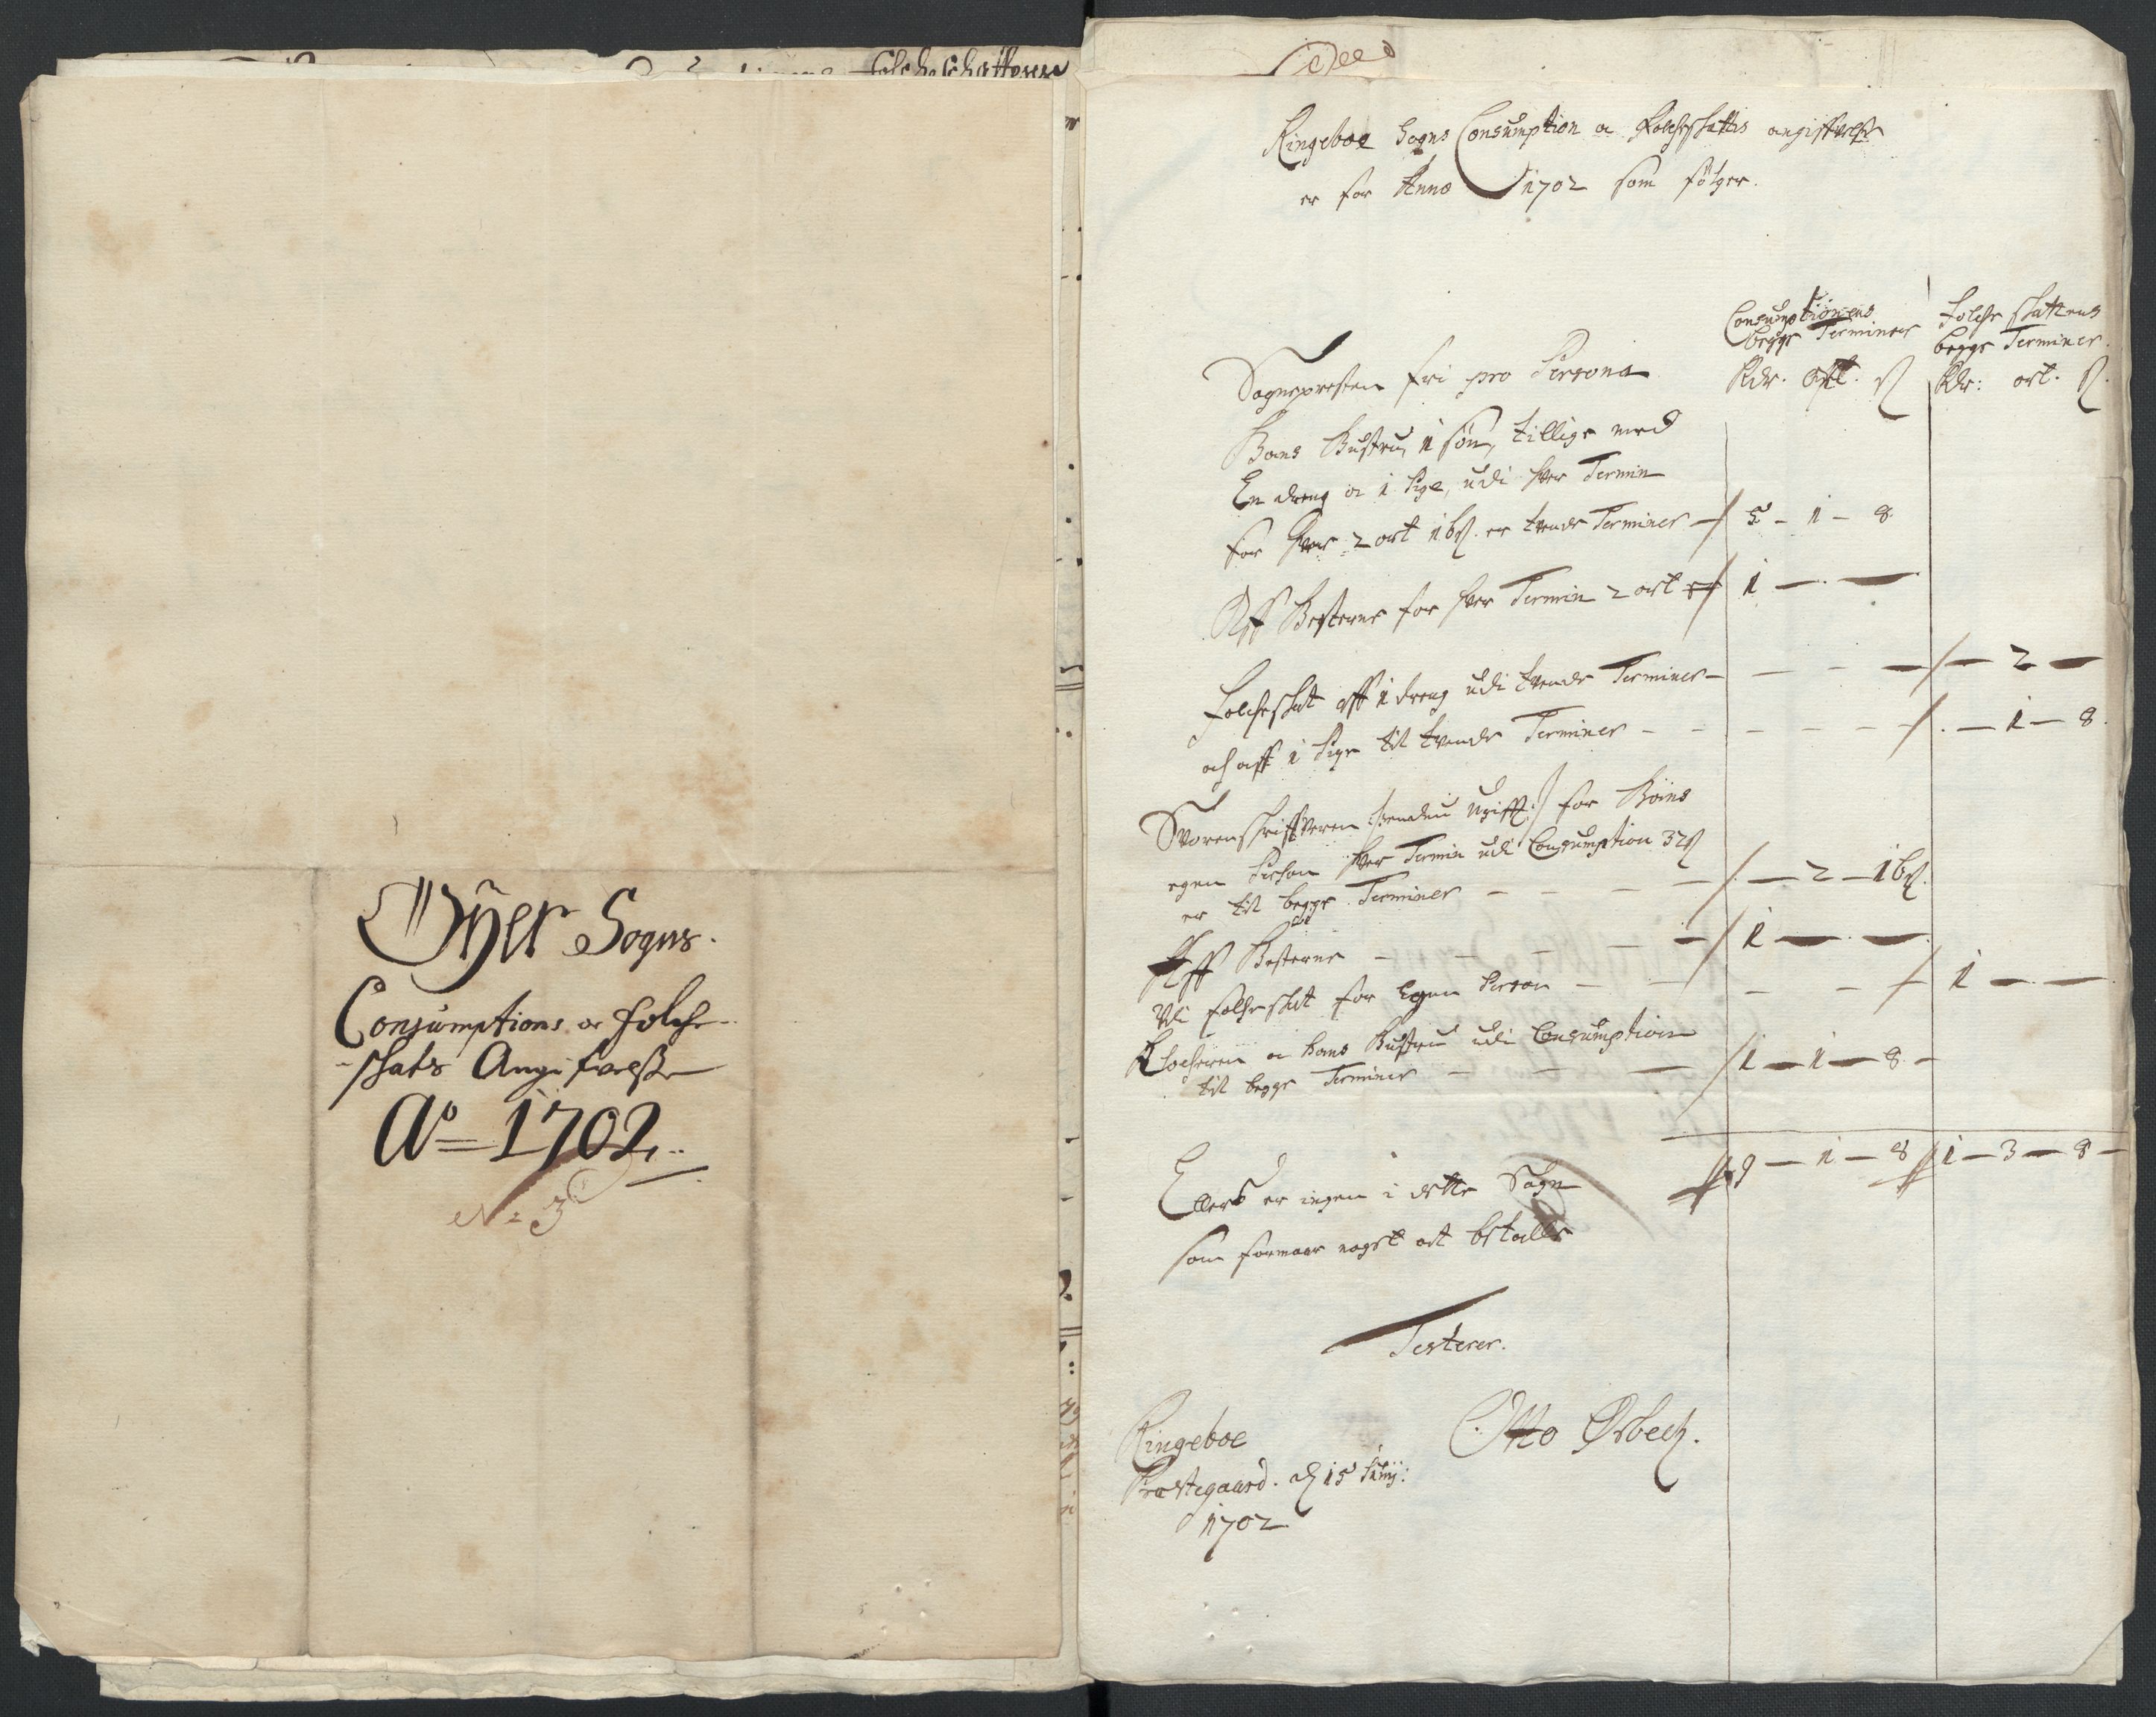 Öyer Sogns.
Consumptions oc folche-
-skats Angifvelsse
Ao 1702
N: 3
Ringeboe Sogns Consumption oc Folcheskattis angiffvelse
er for Anno 1702 som følger.
Consumptionens
begge Terminer
Rdr. ort. ß
Folche skattens
begge Terminer.
Rdr: ort. ß.
Sognepresten fri pro Persona
Hans Hustru, 1 søn, tillige med
En dreng oc 1 Pige, udi hver Termin
for hver 2 ort 16ß. er tvende Terminer — 5 - 1 - 8
Aff Hesterne for hver Termin 2 ort er 1 — —
Folcheskat aff 1 dreng udi tvende Terminer — — 2 —
och aff 1 Pige til tvende Terminer - - — 1 — 8.
Sorenskriffveren /:endnu Ugifft:/ for Hans
egen Person hver Termin udi Consumption 32ß
er til begge Terminer - - — 2 — 16ß.
Aff Hesterne - - — 1 — —
Udi folcheskat for Egen Person - — 1 — —
Klocheren oc hans Hustru udi Consumption
til begge Terminer — — 1 — 1 — 8 -
9 — 1 — 8 1 — 3 — 8 —
Ellers er ingen i dette Sogn
som formaar noget at betalle
Testerer.
Ringeboe
Præstegaard. d 15 Junij:
1702
Otto Ørbech.